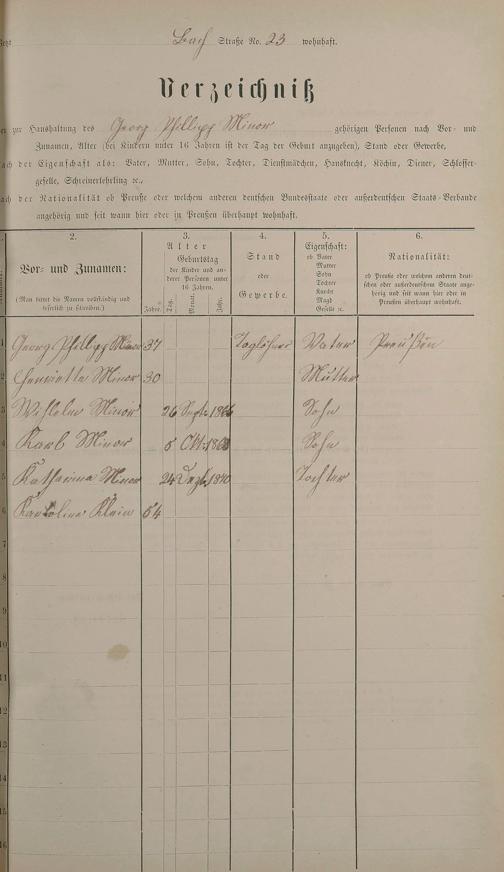 Jetzt Bach Straße No. 23 wohnhaft.
Verzeichniß
der zur Haushaltung des Georg Phillipp Minor gehörigen Personen nach Vor- und
Zunamen, Alter (bei Kindern unter 16 Jahren ist der Tag der Geburt anzugeben), Stand oder Gewerbe,
nach der Eigenschaft als: Vater, Mutter, Sohn, Tochter, Dienstmädchen, Hausknecht, Köchin, Diener, Schlosser-
geselle, Schreinerlehrling ec.,
nach der Nationalität ob Preuße oder welchem anderen deutschen Bundesstaate oder außerdeutschen Staats-Verbande
angehörig und seit wann hier oder in Preußen überhaupt wohnhaft.
1. 2. 3. 4. 5. 6.
Vor- und Zunamen:
(Man bittet die Namen vollständig und leserlich zu schreiben.)
Alter
Jahre.
Geburtstag
der Kinder und anderer Personen unter 16 Jahren.
Tag. Monat. Jahr.
Stand
oder
Gewerbe.
Eigenschaft:
ob Vater
Mutter
Sohn
Tochter
Knecht
Magd
Geselle ec.
Nationalität:
ob Preuße oder welchem anderen deutschen oder außerdeutschen Staate angehörig und seit wann hier oder in Preußen überhaupt wohnhaft.
1 Georg Phillipp Minor 37 Taglöhner Vater Preußen
2 Henriette Minor 30 Mutter
3 Wilhelm Minor 26 Septr. Sohn
4 Karl Minor 5 Okt. Sohn
5 Katharina Minor 24 Dezb. Tochter
6 Karolina Klein 64
7
8
9
10
11
12
13
14
15
16